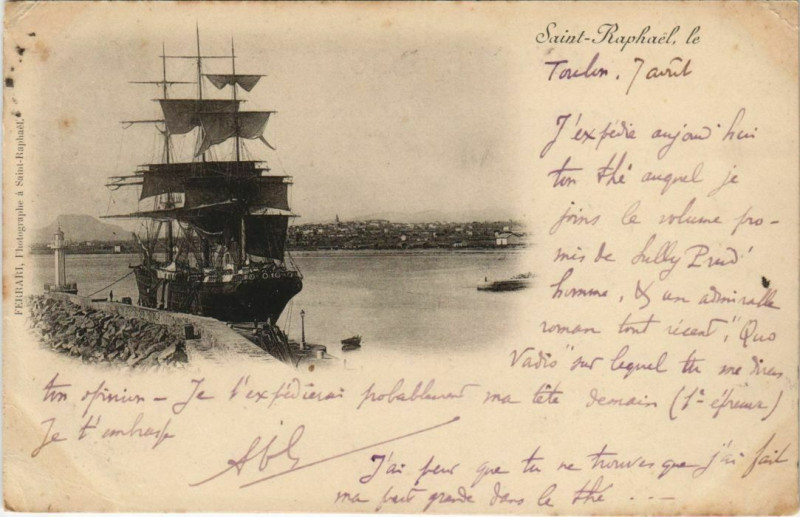 Saint-Raphaël, le
Toulon, 7 avril
J'expédie aujourd'hui
ton thé auquel je
joins le volume pro-
mis de Sully Prud'
homme, & un admirable
roman tout récent, "Quo
Vadis" sur lequel tu me diras
ton opinion - Je t'expédierai probablement ma tête demain (1e épreuve)
Je t'embrasse
J'ai peur que tu ne trouves que j'ai fait
ma part grande dans le thé ...
FERRARI, Photographe à Saint-Raphaël.